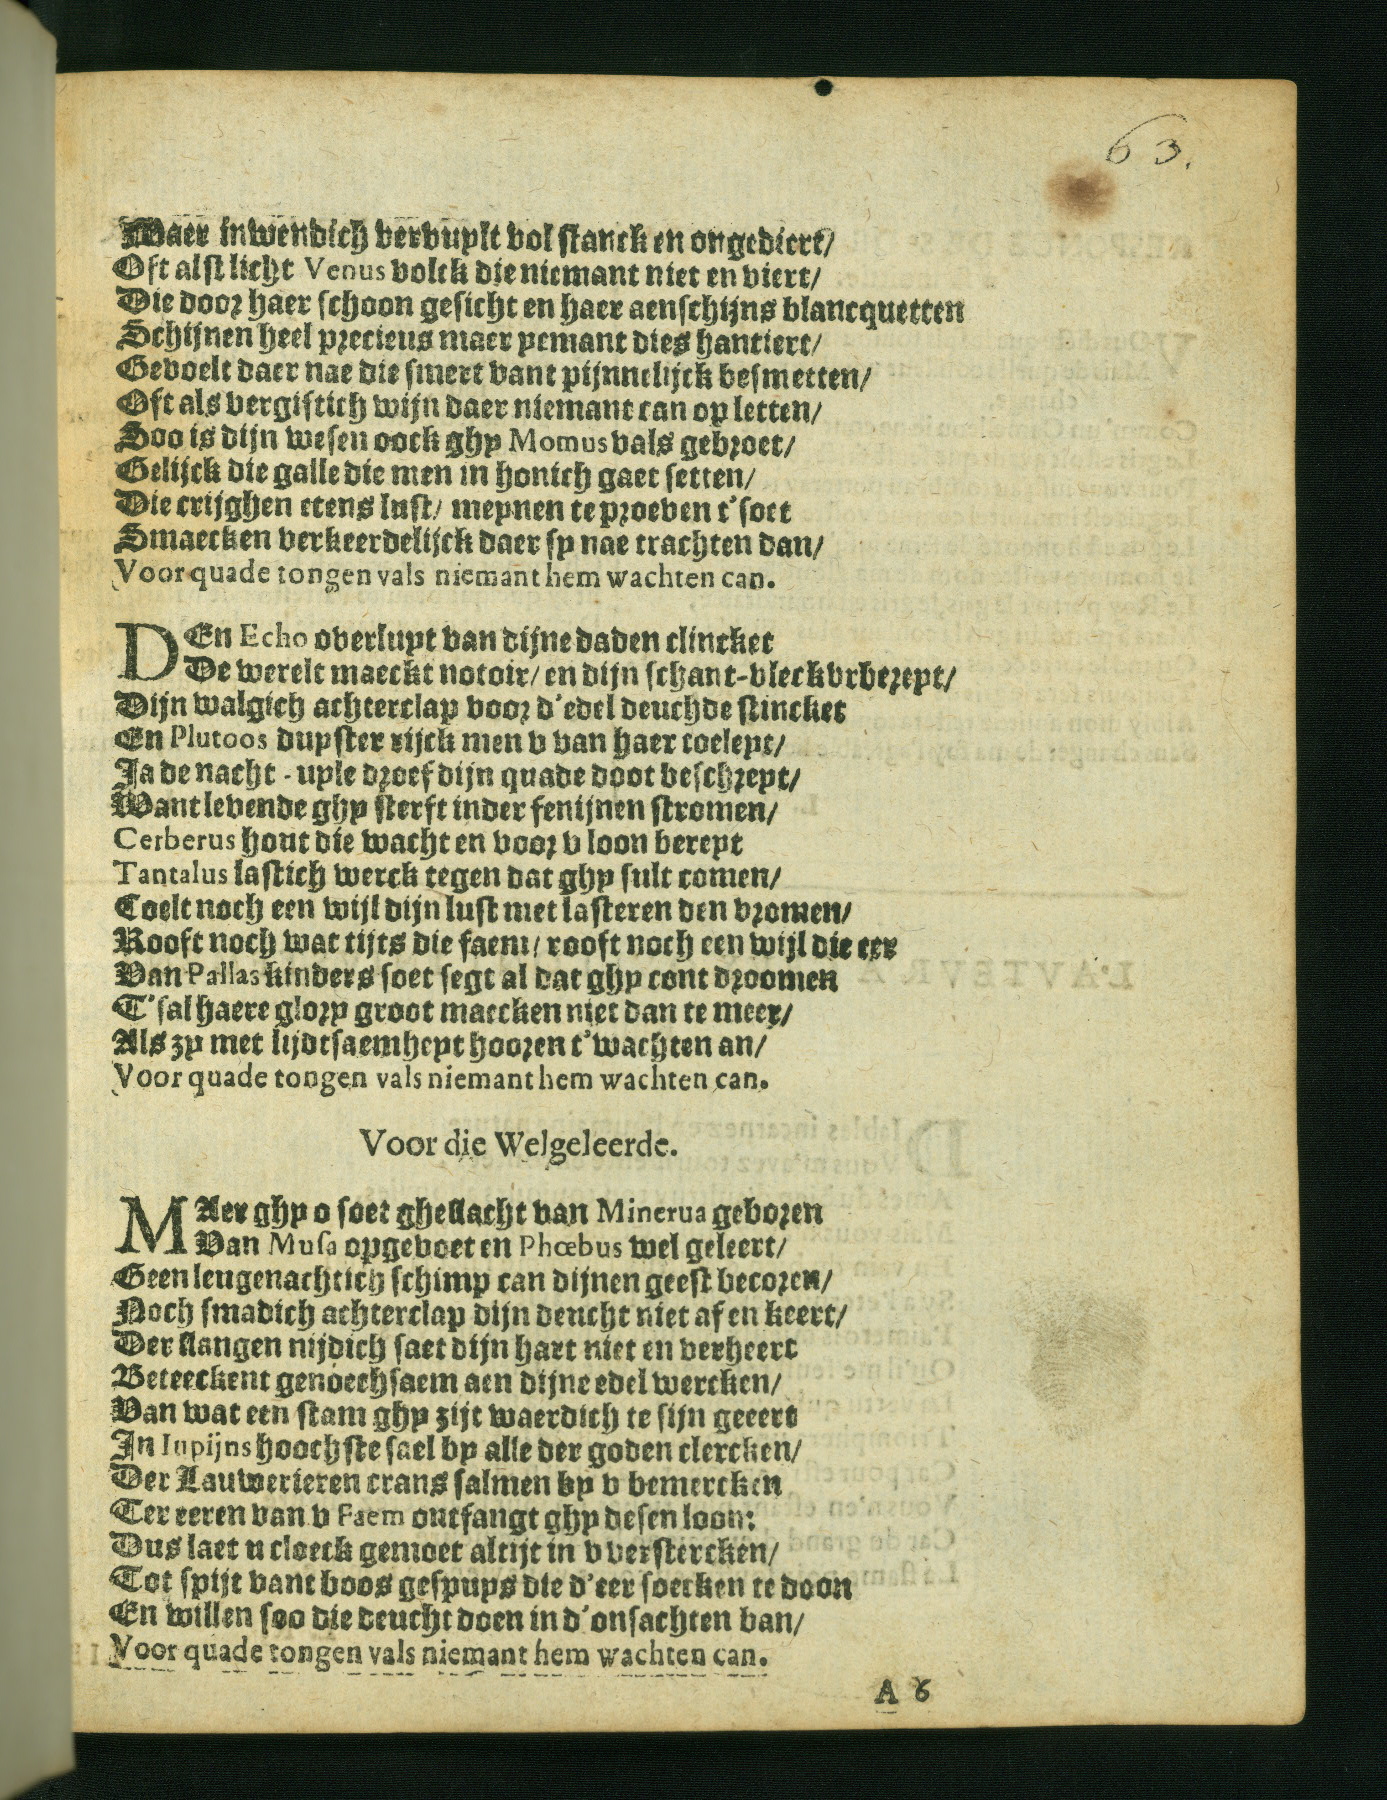 63.
Waer inwendich vervuylt vol stanck en ongediert/
Oft alst licht Venus volck die niemant niet en viert/
Die door haer schoon gesicht en haer aenschijns blancquetten
Schijnen heel precieus maer yemant dies hantiert/
Gevoelt daer nae die smert vant pijnnelijck besmetten/
Oft als vergiftich wijn daer niemant can op letten/
Soo is dijn wesen oock ghy Momus vals gebroet/
Gelijck die galle die men in honich gaet setten/
Die crijghen etens lust/ meynen te proeven t'soet
Smaecken verkeerdelijck daer sy nae trachten dan/
Voor quade tongen vals niemant hem wachten can.
DEn Echo overluyt van dijne daden clincket
De werelt maeckt notoir/ en dijn schant-vleck
Dijn walgich achterclap voor d'edel deuchde stincket
En Plutoos duyster rijck men v van haer toeleyt/
Ja de nacht-uyle droef dijn quade doot beschreyt/
Want levende ghy sterft inder fenijnen stromen/
Cerberus hout die wacht en voor v loon bereyt
Tantalus lastich werck tegen dat ghy sult comen/
Coelt noch een wijl dijn lust met lasteren den vromen/
Rooft noch wat tijts die faem/ rooft noch een wijl die eer
Van Pallas kinders soet segt al dat ghy cont droomen
T'sal haere glory groot maecken niet dan te meer/
Als zy met lijdtsaemheyt hooren t'wachten an/
Voor quade tongen vals niemant hem wachten can.
Voor die Welgeleerde.
MAer ghy o soet gheslacht van Minerua geboren
Van Musa opgevoet en Phœbus wel geleert/
Geen leugenachtich schimp can dijnen geest becoren/
Noch smadich achterclap dijn deucht niet af en keert/
Der slangen nijdich saet dijn hart niet en verheert
Beteeckent genoechsaem aen dijne edel wercken/
Van wat een stam ghy zijt waerdich te sijn geeert
In Iupijns hoochste sael by alle der goden clercken/
Der Lauwerieren crans salmen by v bemercken
Ter eeren van v Faem ontfangt ghy desen loon:
Dus laet u cloeck gemoet altijt in v verstercken/
Tot spijt vant boos gespuys die d'eer soecken te doon
En willen soo die deucht doen in d'onsachten ban/
Voor quade tongen vals niemant hem wachten can.
A 6